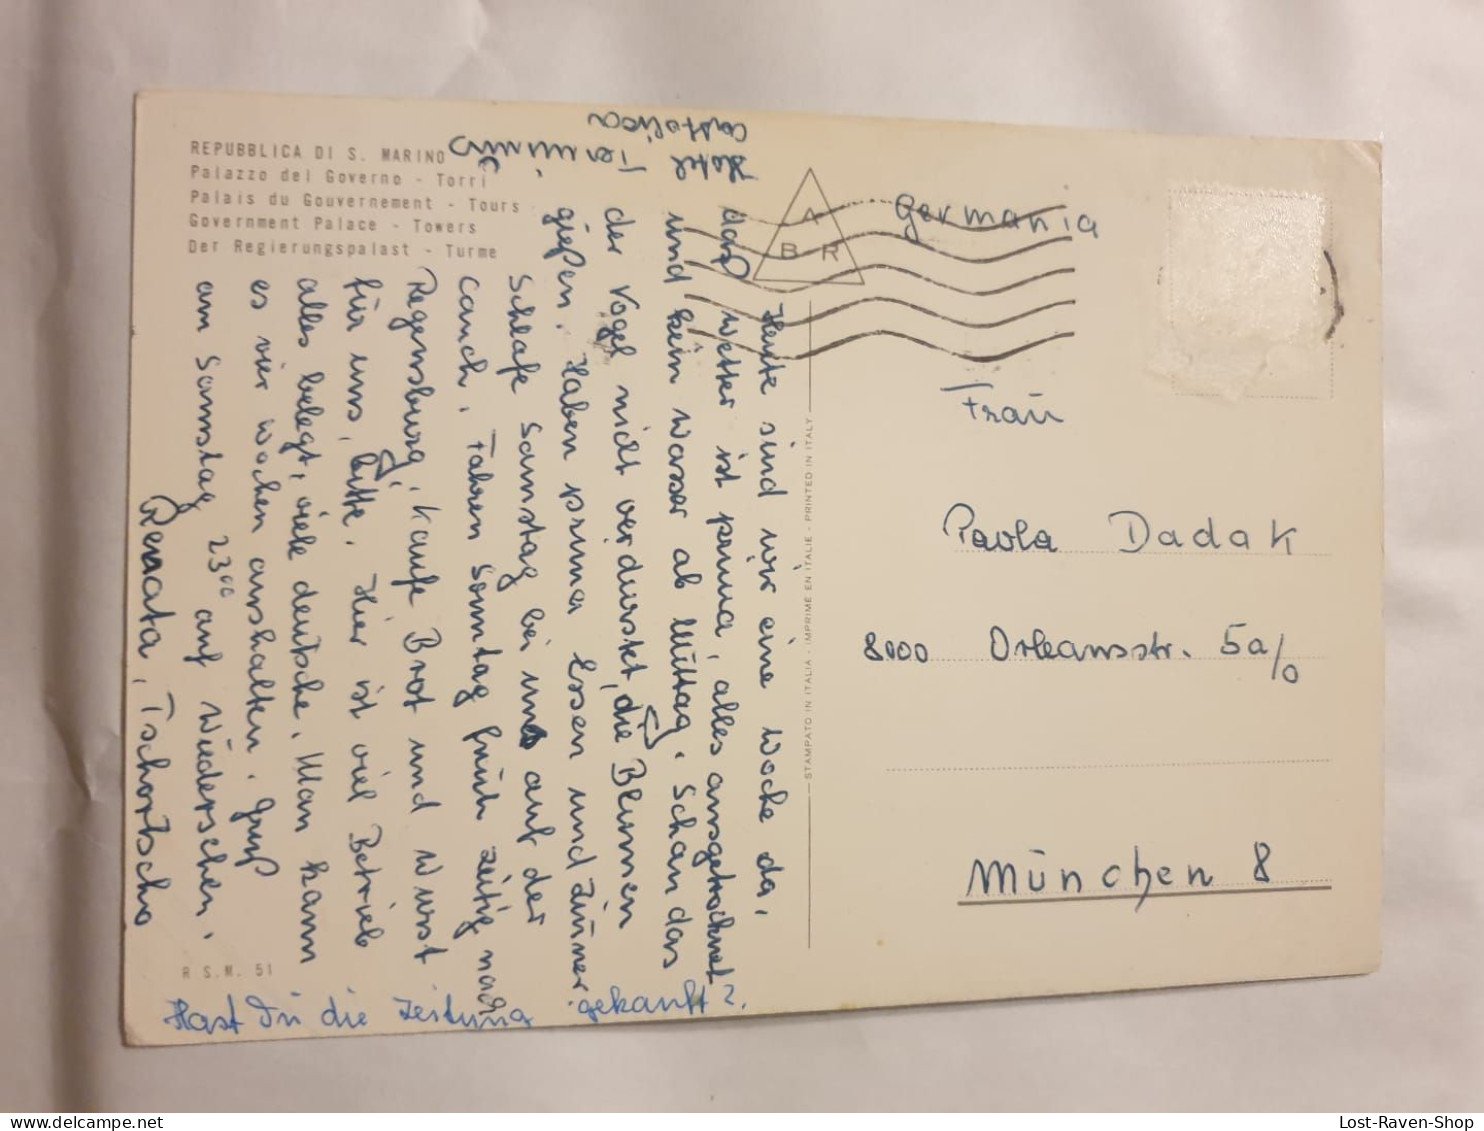 REPUBBLICA DI S. MARINO
Palazzo del Governo - Torri
Palais du Gouvernement - Tours
Government Palace - Towers
Der Regierungspalast - Turme
Hotel Terminus
Cattolica
Heute sind wir eine Woche da,
das Wetter ist prima, alles ausgetrocknet
und kein Wasser ab Mittag. Schau das
der Vogel nicht verdurstet, die Blumen
gießen. Haben prima Essen und Zimer
Schlafe Samstag bei uns auf der
Cauch. Fahren Sonntag früh zeitig nach
Regensburg, kaufe Brot und Wurst
für uns, bitte. Hier ist viel Betrieb
alles belegt, viele deutsche. Man kann
es vier Wochen aushalten. Gruß
am Samstag 23⁰⁰ auf Wiedersehen.
Renata, Tschortscho
Hast Du die Zeitung gekauft?
R S.M. 51
STAMPATO IN ITALIA - IMPRIMÉ EN ITALIE - PRINTED IN ITALY
A
B R
Germania
Frau
Paola Dadak
8000 Orleansstr. 5a/0
München 8
Lost-Raven-Shop